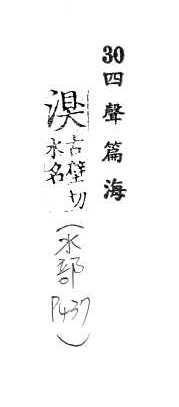 30四聲篇海
湨
古壁切
水名
(水部P437)